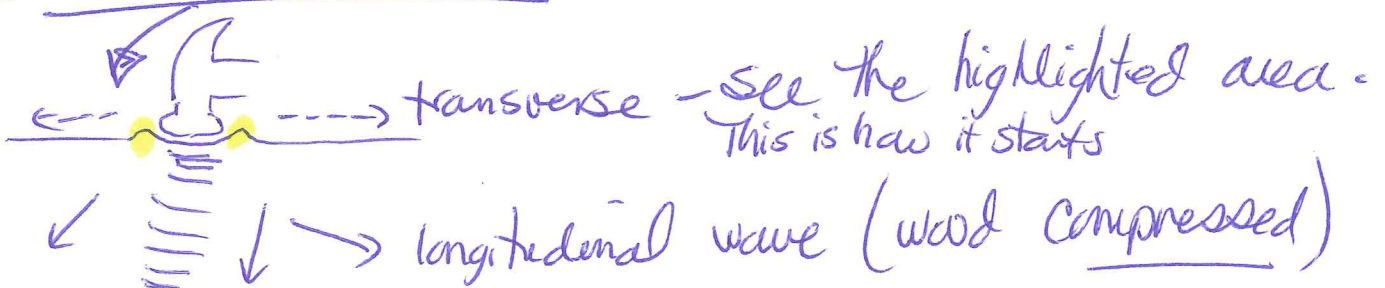 transverse - see the highlighted area.
This is how it starts
longitudinal wave (wood compressed)